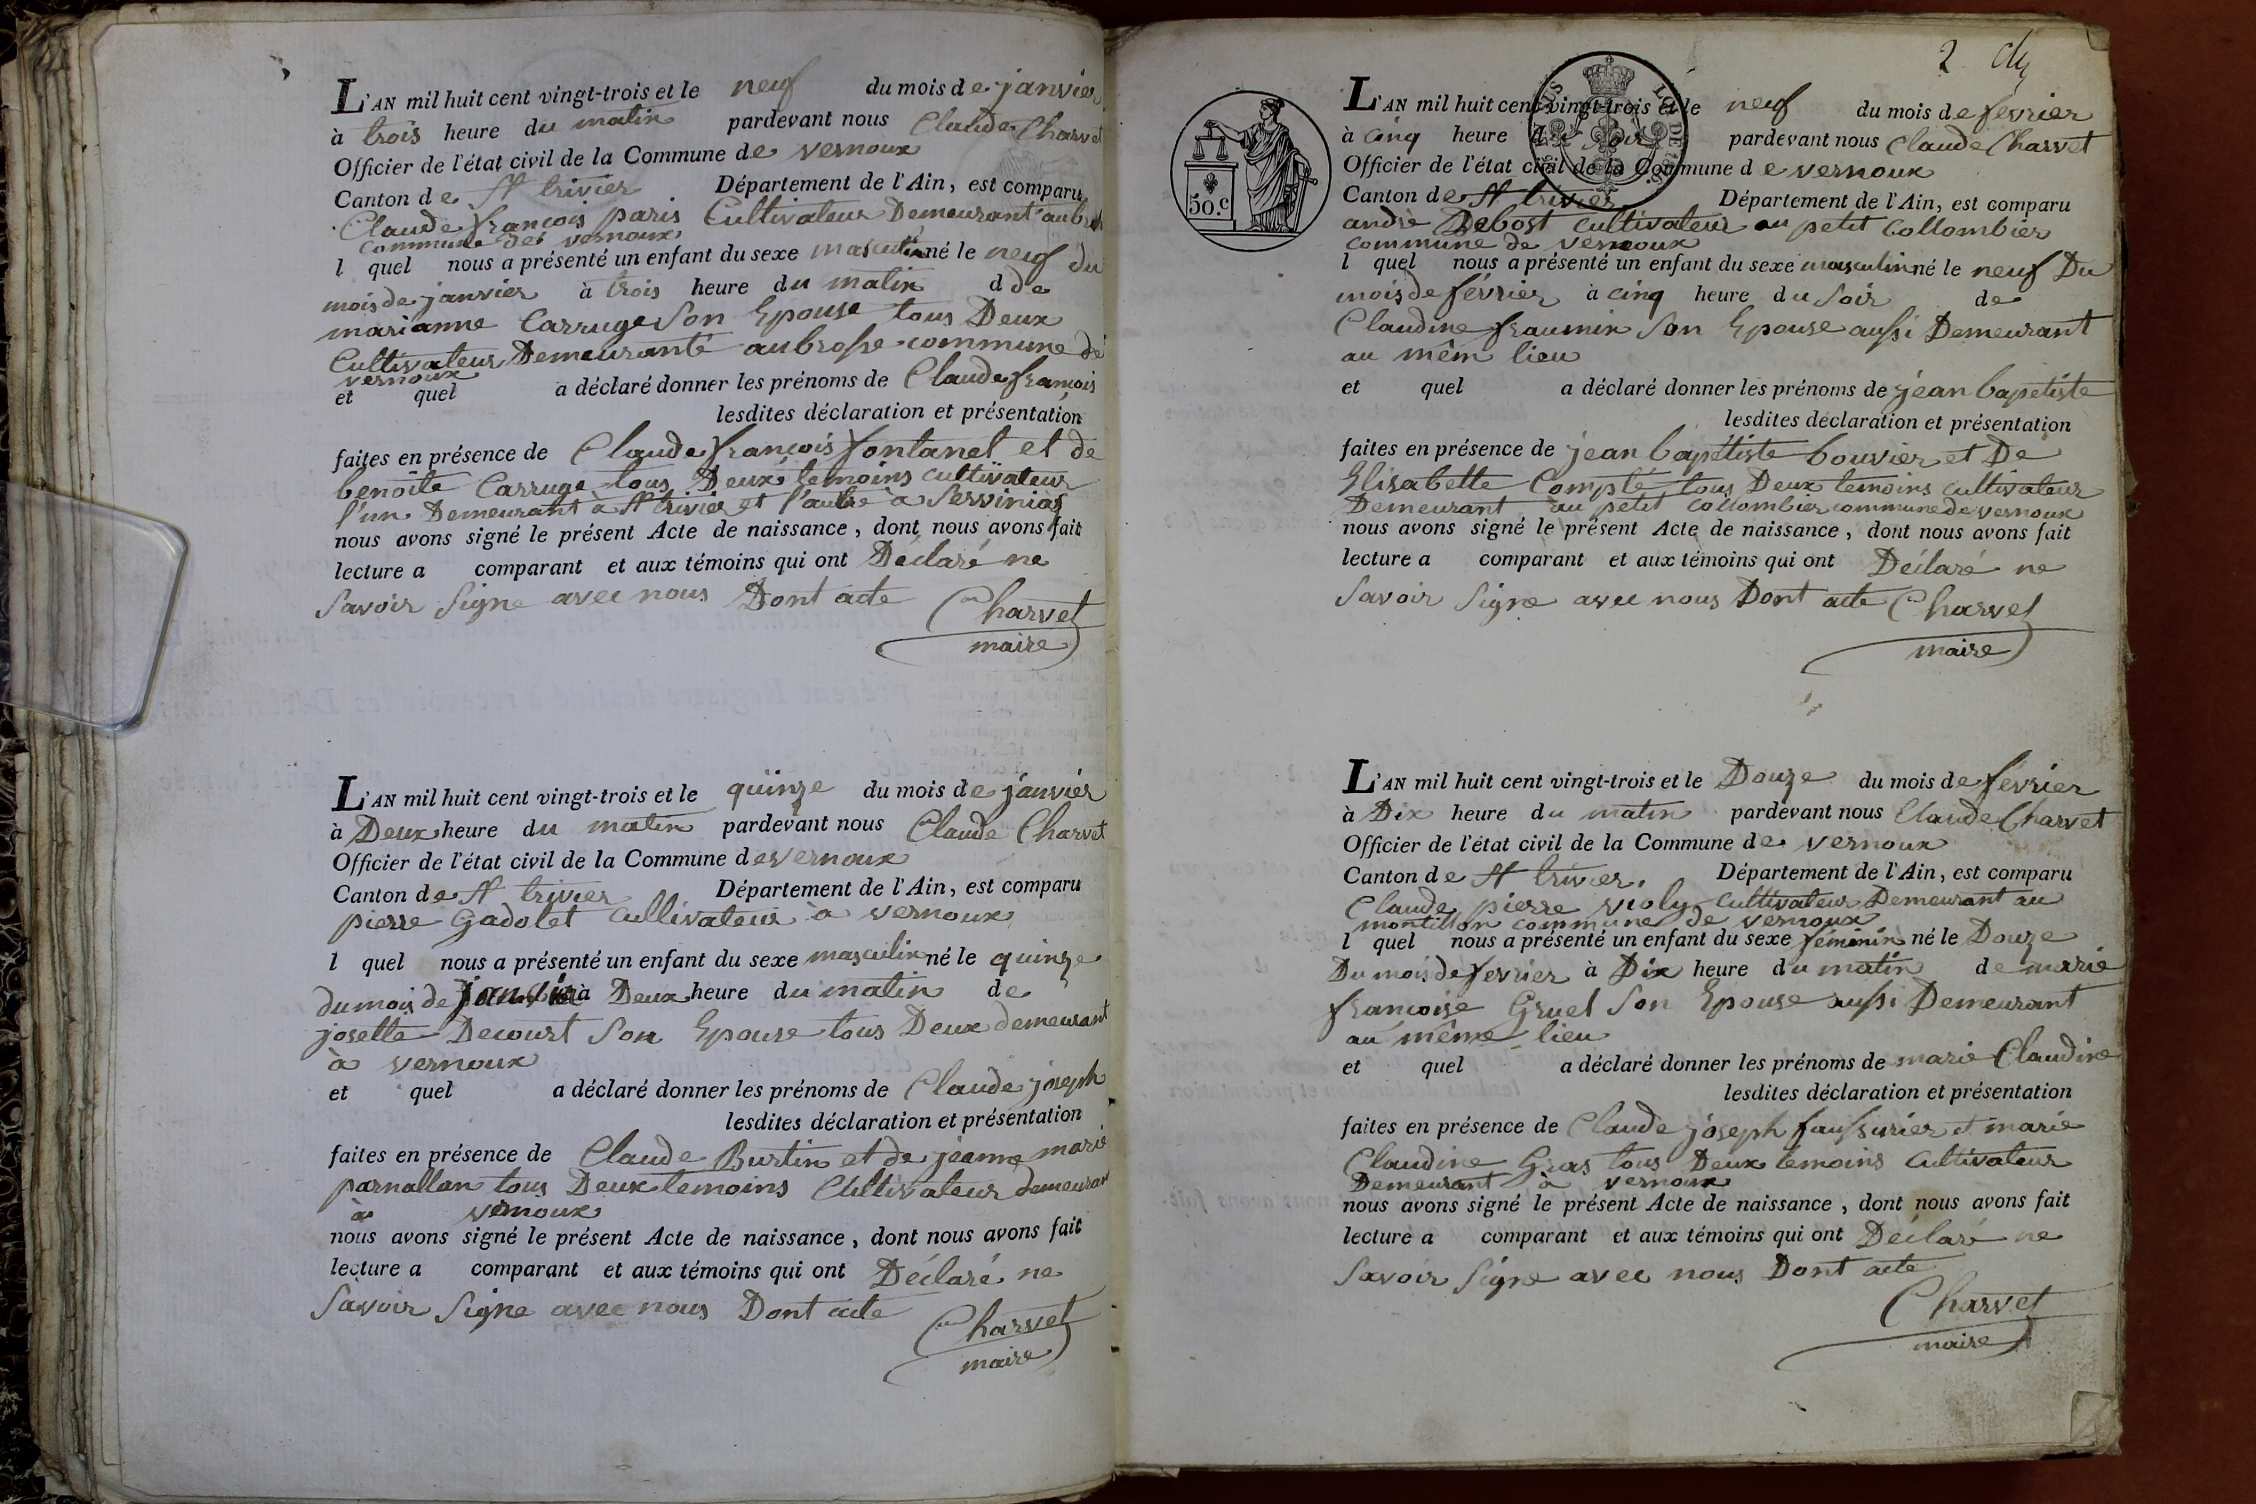 L'AN mil huit cent vingt-trois et le neuf du mois de janvier
à trois heure du matin pardevant nous Claude Charvet
Officier de l'état civil de la Commune de vernoux
Canton de St trivier Département de l'Ain, est comparu
Claude françois paris Cultivateur Demeurant au
Commune de vernoux
l quel nous a présenté un enfant du sexe masculin né le neuf du
mois de janvier à trois heure du matin d de
marianne Carruge Son Epouse tous Deux
Cultivateur Demeurante aubrosse commune de
vernoux
et quel a déclaré donner les prénoms de Claude françois
lesdites déclaration et présentation
faites en présence de Claude françois fontanel et de
benoite Carruge tous Deux temoins cultivateur
l'un Demeurant à St trivier et l'autre à Servinias
nous avons signé le présent Acte de naissance, dont nous avons fait
lecture a comparant et aux témoins qui ont Déclaré ne
Savoir Signe avec nous Dont acte Charvet
maire
L'AN mil huit cent vingt-trois et le quinze du mois de janvier
à Deux heure du matin pardevant nous Claude Charvet
Officier de l'état civil de la Commune de vernoux
Canton de St trivier Département de l'Ain, est comparu
pierre Gadolet cultivateur à vernoux
l quel nous a présenté un enfant du sexe masculin né le quinze
du mois de janvier à Deux heure du matin de
josette Decourt Son Epouse tous Deux demeurant
à vernoux
et quel a déclaré donner les prénoms de Claude joseph
lesdites déclaration et présentation
faites en présence de Claude Burtin et de jeanne marie
parnallan tous Deux temoins Cultivateur demeurant
à vernoux
nous avons signé le présent Acte de naissance, dont nous avons fait
lecture a comparant et aux témoins qui ont Déclaré ne
Savoir Signe avec nous Dont acte Charvet
maire
2
50.c
L'AN mil huit cent vingt-trois et le neuf du mois de fevrier
à cinq heure du Soir pardevant nous Claude Charvet
Officier de l'état civil de la Commune de vernoux
Canton de St trivier Département de l'Ain, est comparu
andré Debost Cultivateur au petit Collombier
commune de vernoux
l quel nous a présenté un enfant du sexe masculin né le neuf Du
mois de février à cinq heure du Soir de
Claudine fraumin Son Epouse aussi Demeurant
au mêm lieu
et quel a déclaré donner les prénoms de jean baptiste
lesdites déclaration et présentation
faites en présence de jean baptiste bouvier et De
Elisabette Compte tous Deux temoins cultivateur
Demeurant au petit collombier commune de vernoux
nous avons signé le présent Acte de naissance, dont nous avons fait
lecture a comparant et aux témoins qui ont Déclaré ne
Savoir Signe avec nous Dont acte Charvet
maire
L'AN mil huit cent vingt-trois et le Douze du mois de fevrier
à Dix heure du matin pardevant nous Claude Charvet
Officier de l'état civil de la Commune de vernoux
Canton de St trivier. Département de l'Ain, est comparu
Claude pierre violy Cultivateur Demeurant au
montillon commune de vernoux
l quel nous a présenté un enfant du sexe féminin né le Douze
Du mois de fevrier à Dix heure du matin de marie
françoise Gruel Son Epouse aussi Demeurant
au même lieu
et quel a déclaré donner les prénoms de marie Claudine
lesdites déclaration et présentation
faites en présence de Claude joseph faussurier et marie
Claudine Gras tous Deux temoins Cultivateur
Demeurant à vernoux
nous avons signé le présent Acte de naissance, dont nous avons fait
lecture a comparant et aux témoins qui ont Déclaré ne
Savoir Signe avec nous Dont acte
Charvet
maire